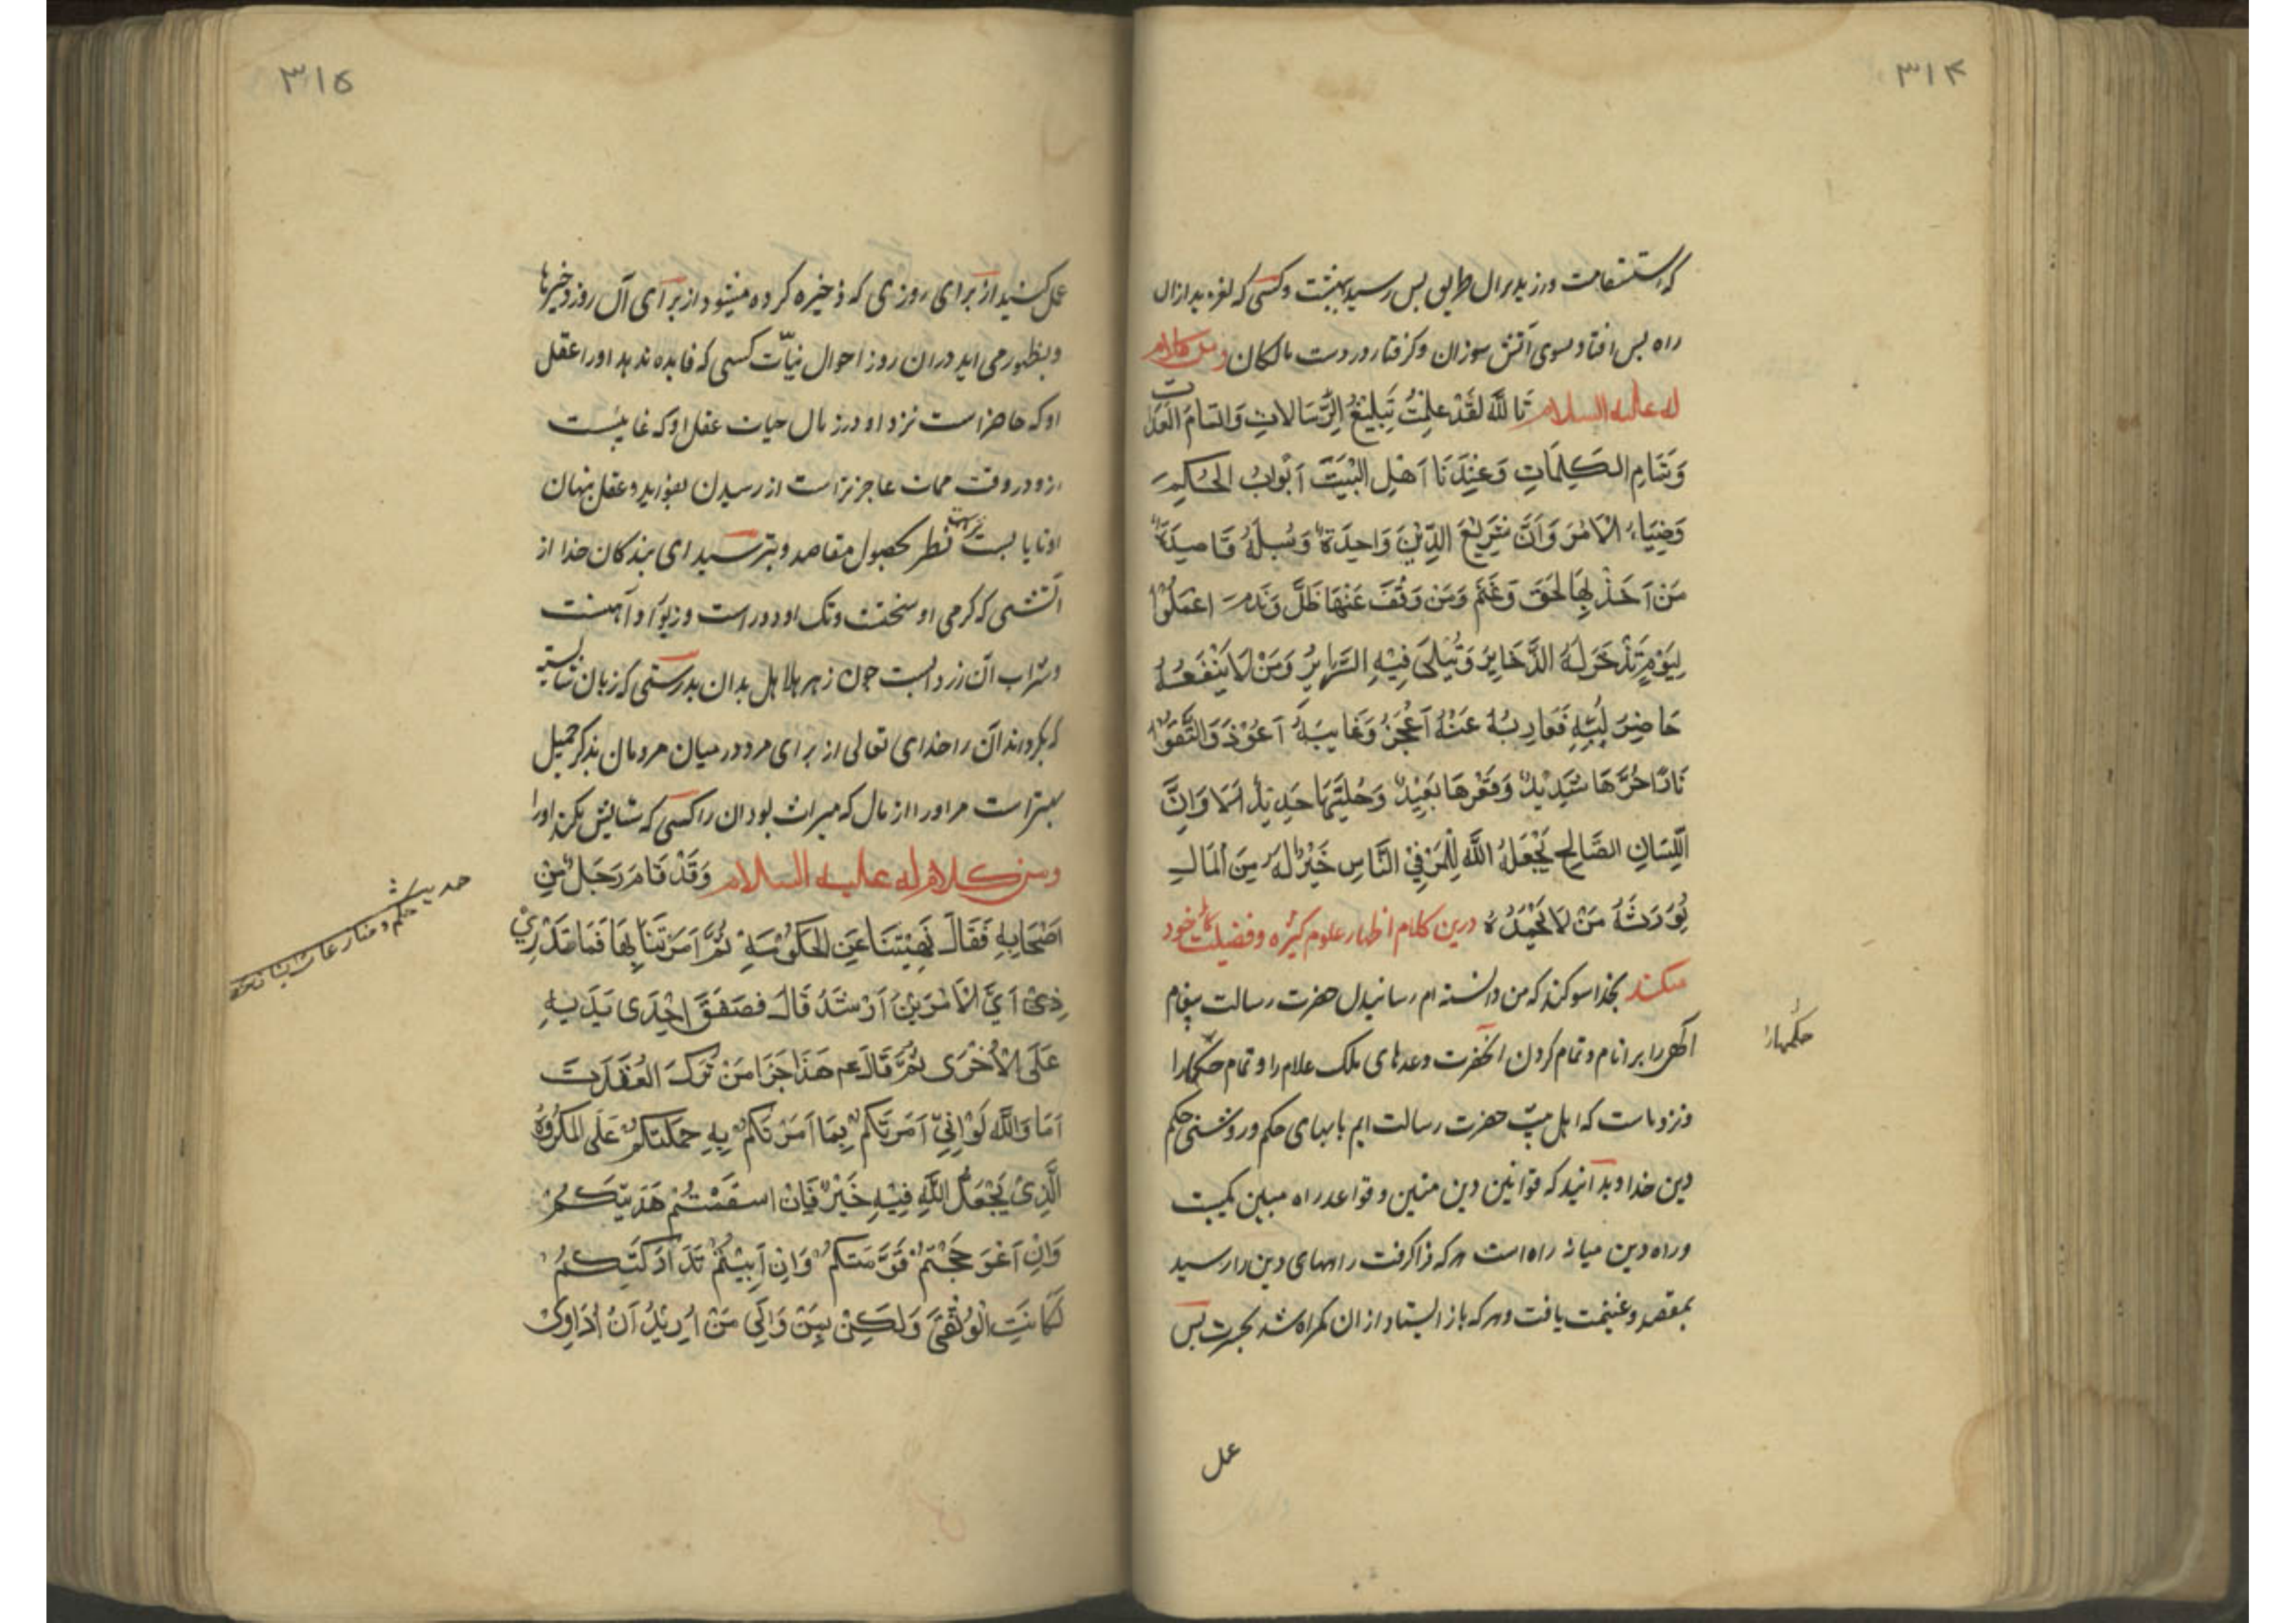 ۳۱۴
که استقامت ورزید بران طریق پس رسید ببهشت و کسی که لغزید از ان
راه پس افتاد بسوی آتش سوزان و گرفتار در دست مالکان ومن کلام
له علیه السلام تَاللَّهِ لَقَدْ عَلِمْتُ تَبْلِیْغَ الرِّسَالَاتِ وَاتمَامَ العَدَات
وَتَمَامِ الکَلِمَاتِ وَعِنْدَنَا اَهْلَ البَیْتَ اَبْوَابُ الحُکِمَ
وَضِیَاءُ الاَمْرَ وَاَنَّ شَرَایِعَ الدِّیْنَ وَاحِدَةٌ وَسُبلَهُ قَاصِدَةٌ
مَنْ اَخَذَ بِهَا لَحَقَ وَغَنَمَ وَمَنْ وَقَفَ عَنْهَا ظَلَّ وَنَدمَ اعْمَلُوْا
لِیَوْمٍ تَذْخَرَ لَهُ الذَّخَایِرُ وَتُبْلٰی فِیْهِ السَّرَایِرُ وَمَنْ لَا یَنْفَعُهُ
حَاضِرَ لُبِّهِ فَعَازِبُهُ عَنْهُ اَعْجَزُ وَغَایِبَهُ اَعْوَذَ وَاتَّقُوْا
نَارًا حَرَّهَا شَدِیْدٌ وَقَعْرِهَا بَعِیْدٌ وَحُلِیَّهَا حَدِیْدٌ اَلَا وَاِنَّ
اللِّسَانِ الصَّالِحِ یَجْعَلَهُ اللَّه لِلْمَرْ فِیْ النَّاسِ خَیْرٌ لَهُ مِنَ الْمَالِ
یُوْرِثَهُ مَنْ لَا یَحْمِدُهُ درین کلام اظهار علوم کثیره و فضیلت خود
میکند بخدا سوکند که من دانسته ام رسانیدن حضرت رسالت پیغام
الهی را بر انام و تمام کردن انحضرت وعدهای ملک علام را و تمام حکمها را
حکمها را
و نزد ماست که اهل بیت حضرت رسالت ایم بابهای حکم و روشنی حکم
دین خدا و بدانید که قوانین دین متین و قواعد راه مبین یکیست
و راه دین میانه راه است هر که فراگرفت راههای دین را رسید
بمقصد و غنیمت یافت و هر که باز ایستاد از ان گمراه شد بحسرت پس
عمل
۳۱۵
عمل کنید از برای روزی که ذخیره کرده میشود از برای آن روز ذخیرها
و بظهور می اید در ان روز احوال نیّات کسی که فایده ندهد او را عقل
او که حاضر است نزد او در زمان حیات عقل او که غایبست
ازو در وقت ممات عاجزتر است از رسیدن بفواید و عقل پنهان
او نایابست تر است نظر بحصول مقاصد و بترسید ای بندگان خدا از
آتشی که گرمی او سختست و تک او دور است و زیور او آهنست
و شراب آن زرد است چون زهر هلاهل بدان بدرستی که زبان شایسته
که بگرداند آن را خدای تعالی از برای مرد در میان مردمان بذکر جمیل
بهتر است مر او را از مال که میراث بود ان را کسی که ستایش نکند او را
ومن کلام له علیه السلام وَقَدْ قَامَ رَجُلٌ مِنْ
اَصْحَابِهِ فَقَالَ نَهِیْتَنَا عَنِ الحَکُوْمَةِ ثُمَّ اَمَرْتَنَا بِهَا فَمَا نَدْرِیْ
حدیث
حکم و
اَیَّ الاَمْرَیْنِ اَرْشَدُ قَالَ فَصَفَقَ اِحْدَی یَدَیْهِ
عَلَی الْاُخْرَی ثُمَّ قَالَ عم هَذَا جَزَا مَنْ تَرَکَ العُقْدَةَ
اَمَا وَاللَّه لَوْ اِنِّیْ اَمَرْتُکُمْ بِمَا اَمَرْتُکُمْ بِهِ حَمَلْتُکُمْ عَلَی المَکْرُوْهُ
الَّذِیْ یَجْعَلُ اللَّه فِیْهِ خَیْرٌ فَاِنْ اسْتَقَمْتُمْ هَدَیْتُکُمْ
وَاِنْ اعْوَجَجْتُمْ قَوَّمْتُکُمْ وَاِنْ اَبِیْتُمْ تَدَارَکْتُکُمْ
لَکَانَتِ الْوُثْقَیَ وَلَکِنْ بِمَنْ وَاِلَی مَنْ اُرِیْدُ اَنْ اُدَاوِیَ